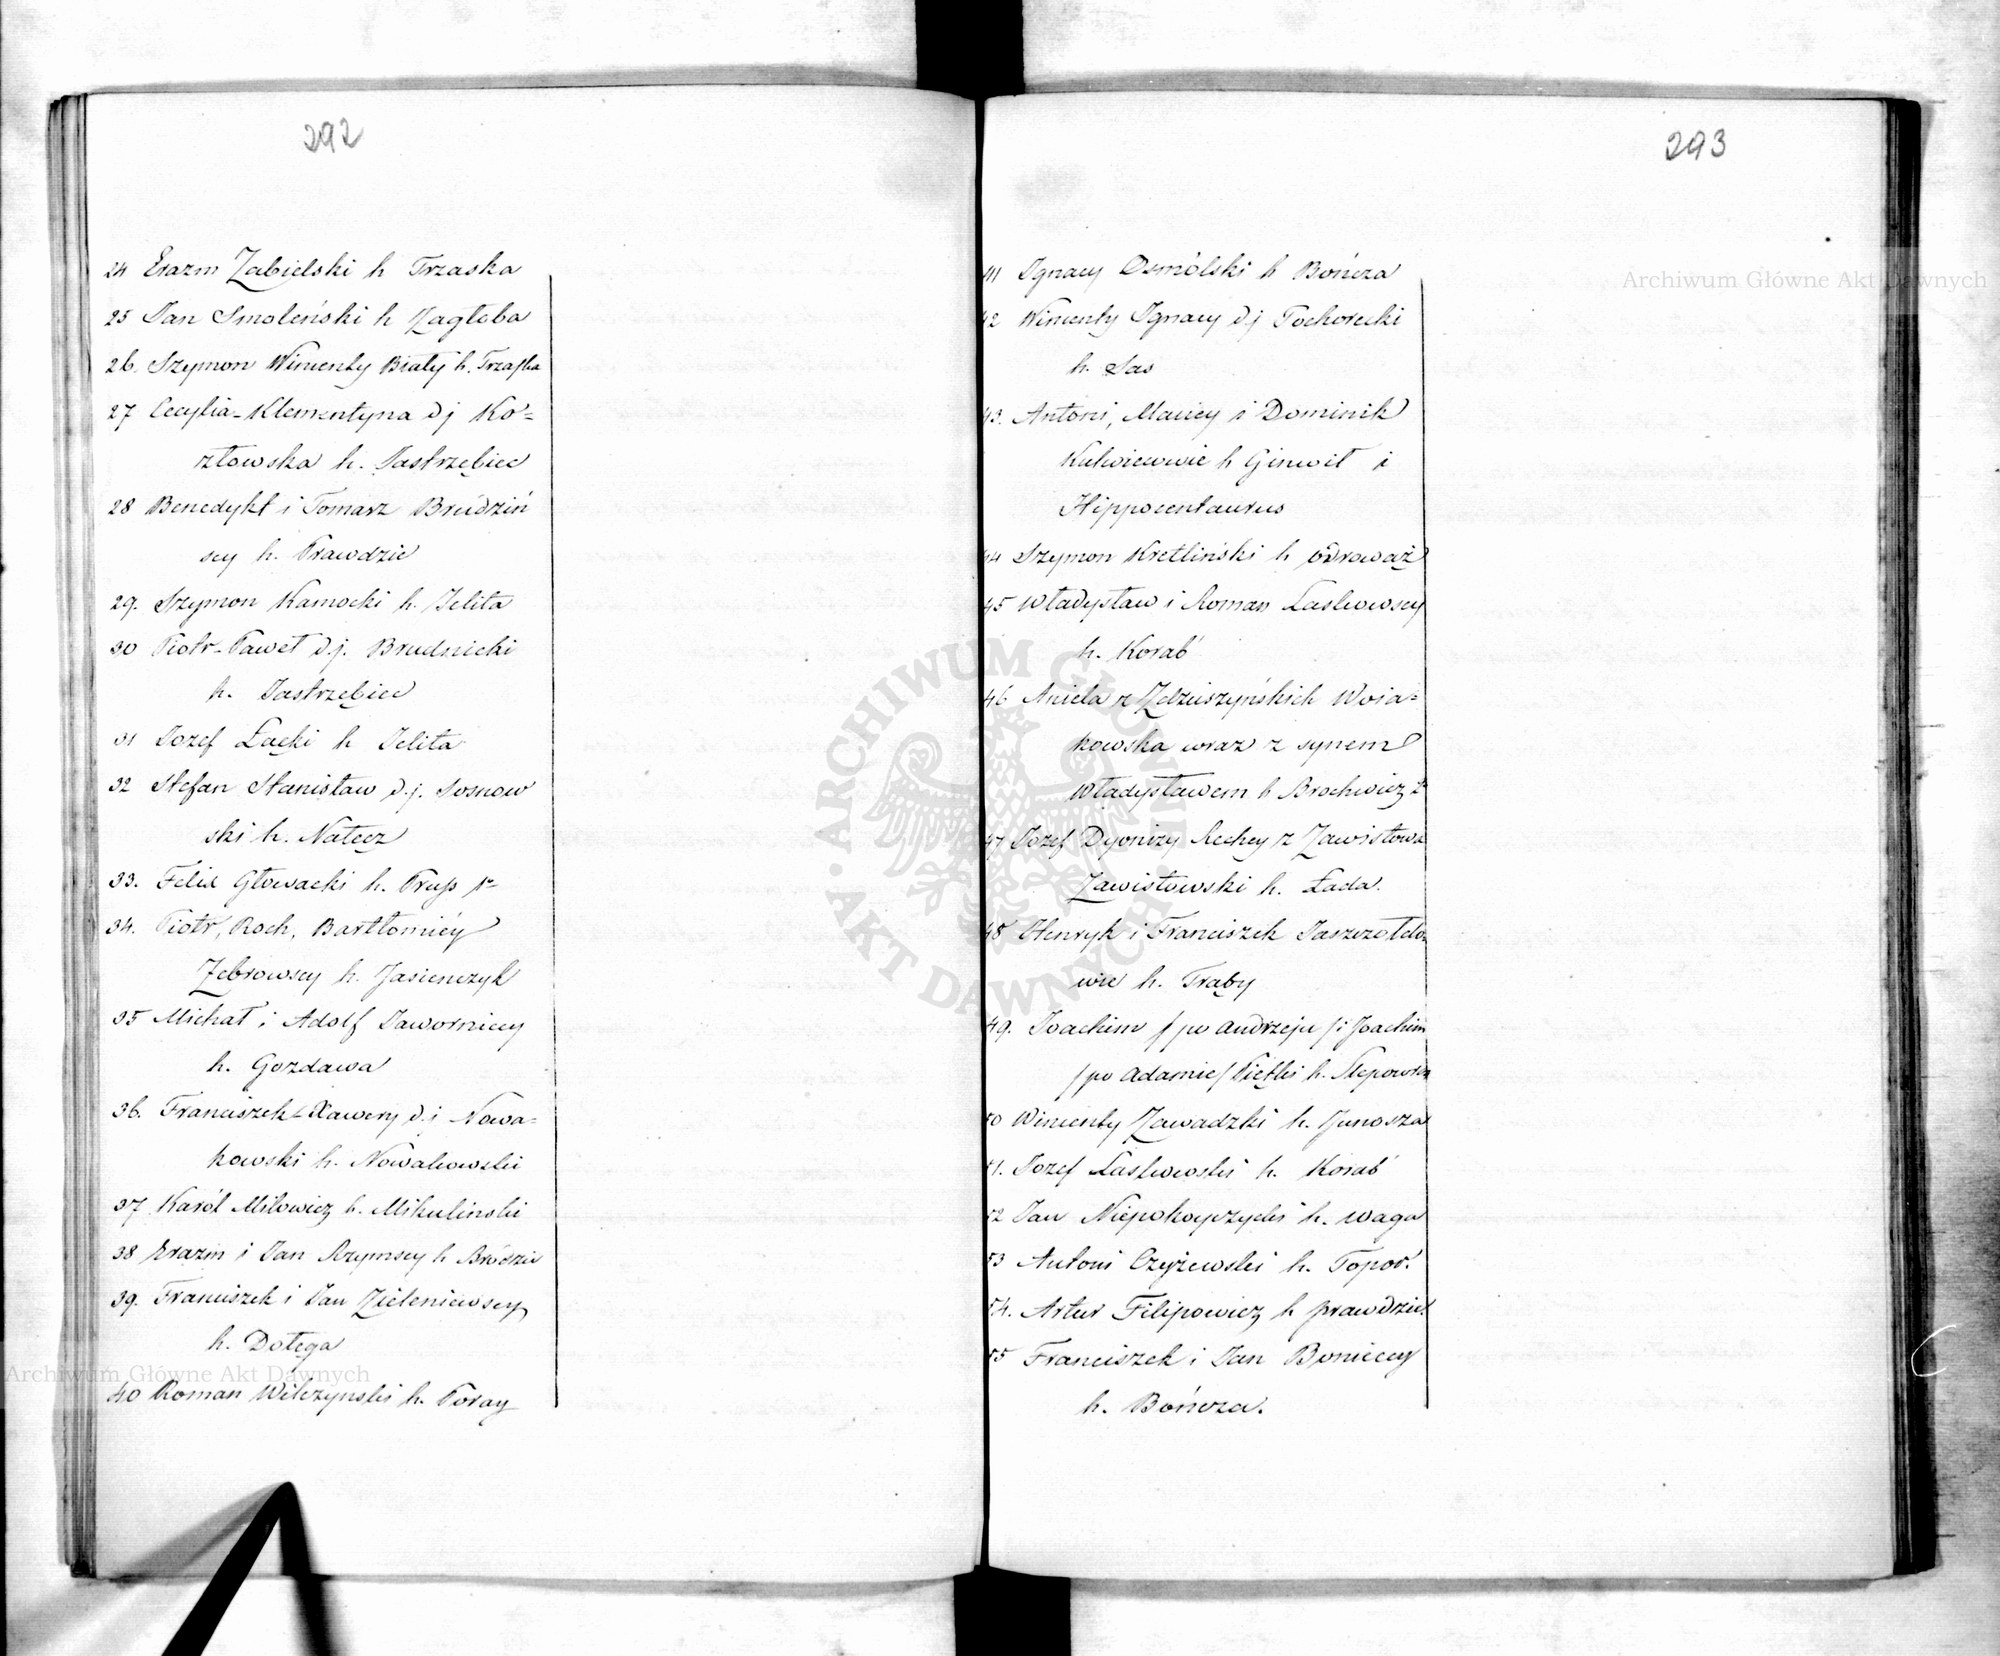 292
24 Erazm Zabielski h Trzaska
25 Jan Smoleński h Zagłoba
26. Szymon Wincenty Biały h. Trzaska
27 Cecylia-Klementyna dj Ko=
złowska h. Jastrzębiec
28 Benedykt i Tomasz Brudziń
scy h. Prawdzic
29. Szymon Kamocki h. Jelita
30 Piotr-Paweł dj. Brudnicki
h. Jastrzębiec
31 Jozef Łącki h Jelita
32 Stefan Stanisław d.j. Sosnow
ski h. Nałęcz
33. Felix Głowacki h. Pruss 1o
34. Piotr, Roch, Bartłomiéy
Zebrowscy h. Jasienczyk
35 Michał i Adolf Jaworniccy
h. Gozdawa
36. Franciszek-Xawery d.j Nowa=
kowski h. Nowakowski
37 Karól Miłowicz h. Mikuliński
38 Erazm i Jan Rzymscy h Bródzic
39. Franciszek i Jan Zieleniewscy
h. Dołęga
40 Roman Wilczynski h. Poray
Archiwum Główne Akt Dawnych
293
41 Ignacy Osmólski h Bończa
42 Wincenty Ignacy dj Tochorecki
h. Sas
43. Antoni, Maciey i Dominik
Kulwiecowie h Ginwił i
Hippocentaurus
44 Szymon Kretliński h Odroważ
45 Władysław i Roman Laskowscy
h. Korab
46 Aniela z Zdziuszyńskich Woia=
kowska wraz z synem
Władysławem h Brochwicz 2o
47 Jozef Dyonizy Rechey z Zawistowa
Zawistowski h. Łada.
48 Henryk i Franciszek Jaszczołdo
wie h. Traby
49. Joachim /po Andrzeju/ i Joachim
/po Adamie/ Piętki h. Slepowron
50 Wincenty Zawadzki h. Junosza
51. Jozef Laskowski h. Korab
52 Jan Niepokoyczycki h. Waga
53 Antoni Czyżewski h. Topor.
54. Artur Filipowicz h prawdzic
55 Franciszek i Jan Bonieccy
h. Bończa.
Archiwum Główne Akt Dawnych
ARCHIWUM GŁÓWNE
AKT DAWNYCH